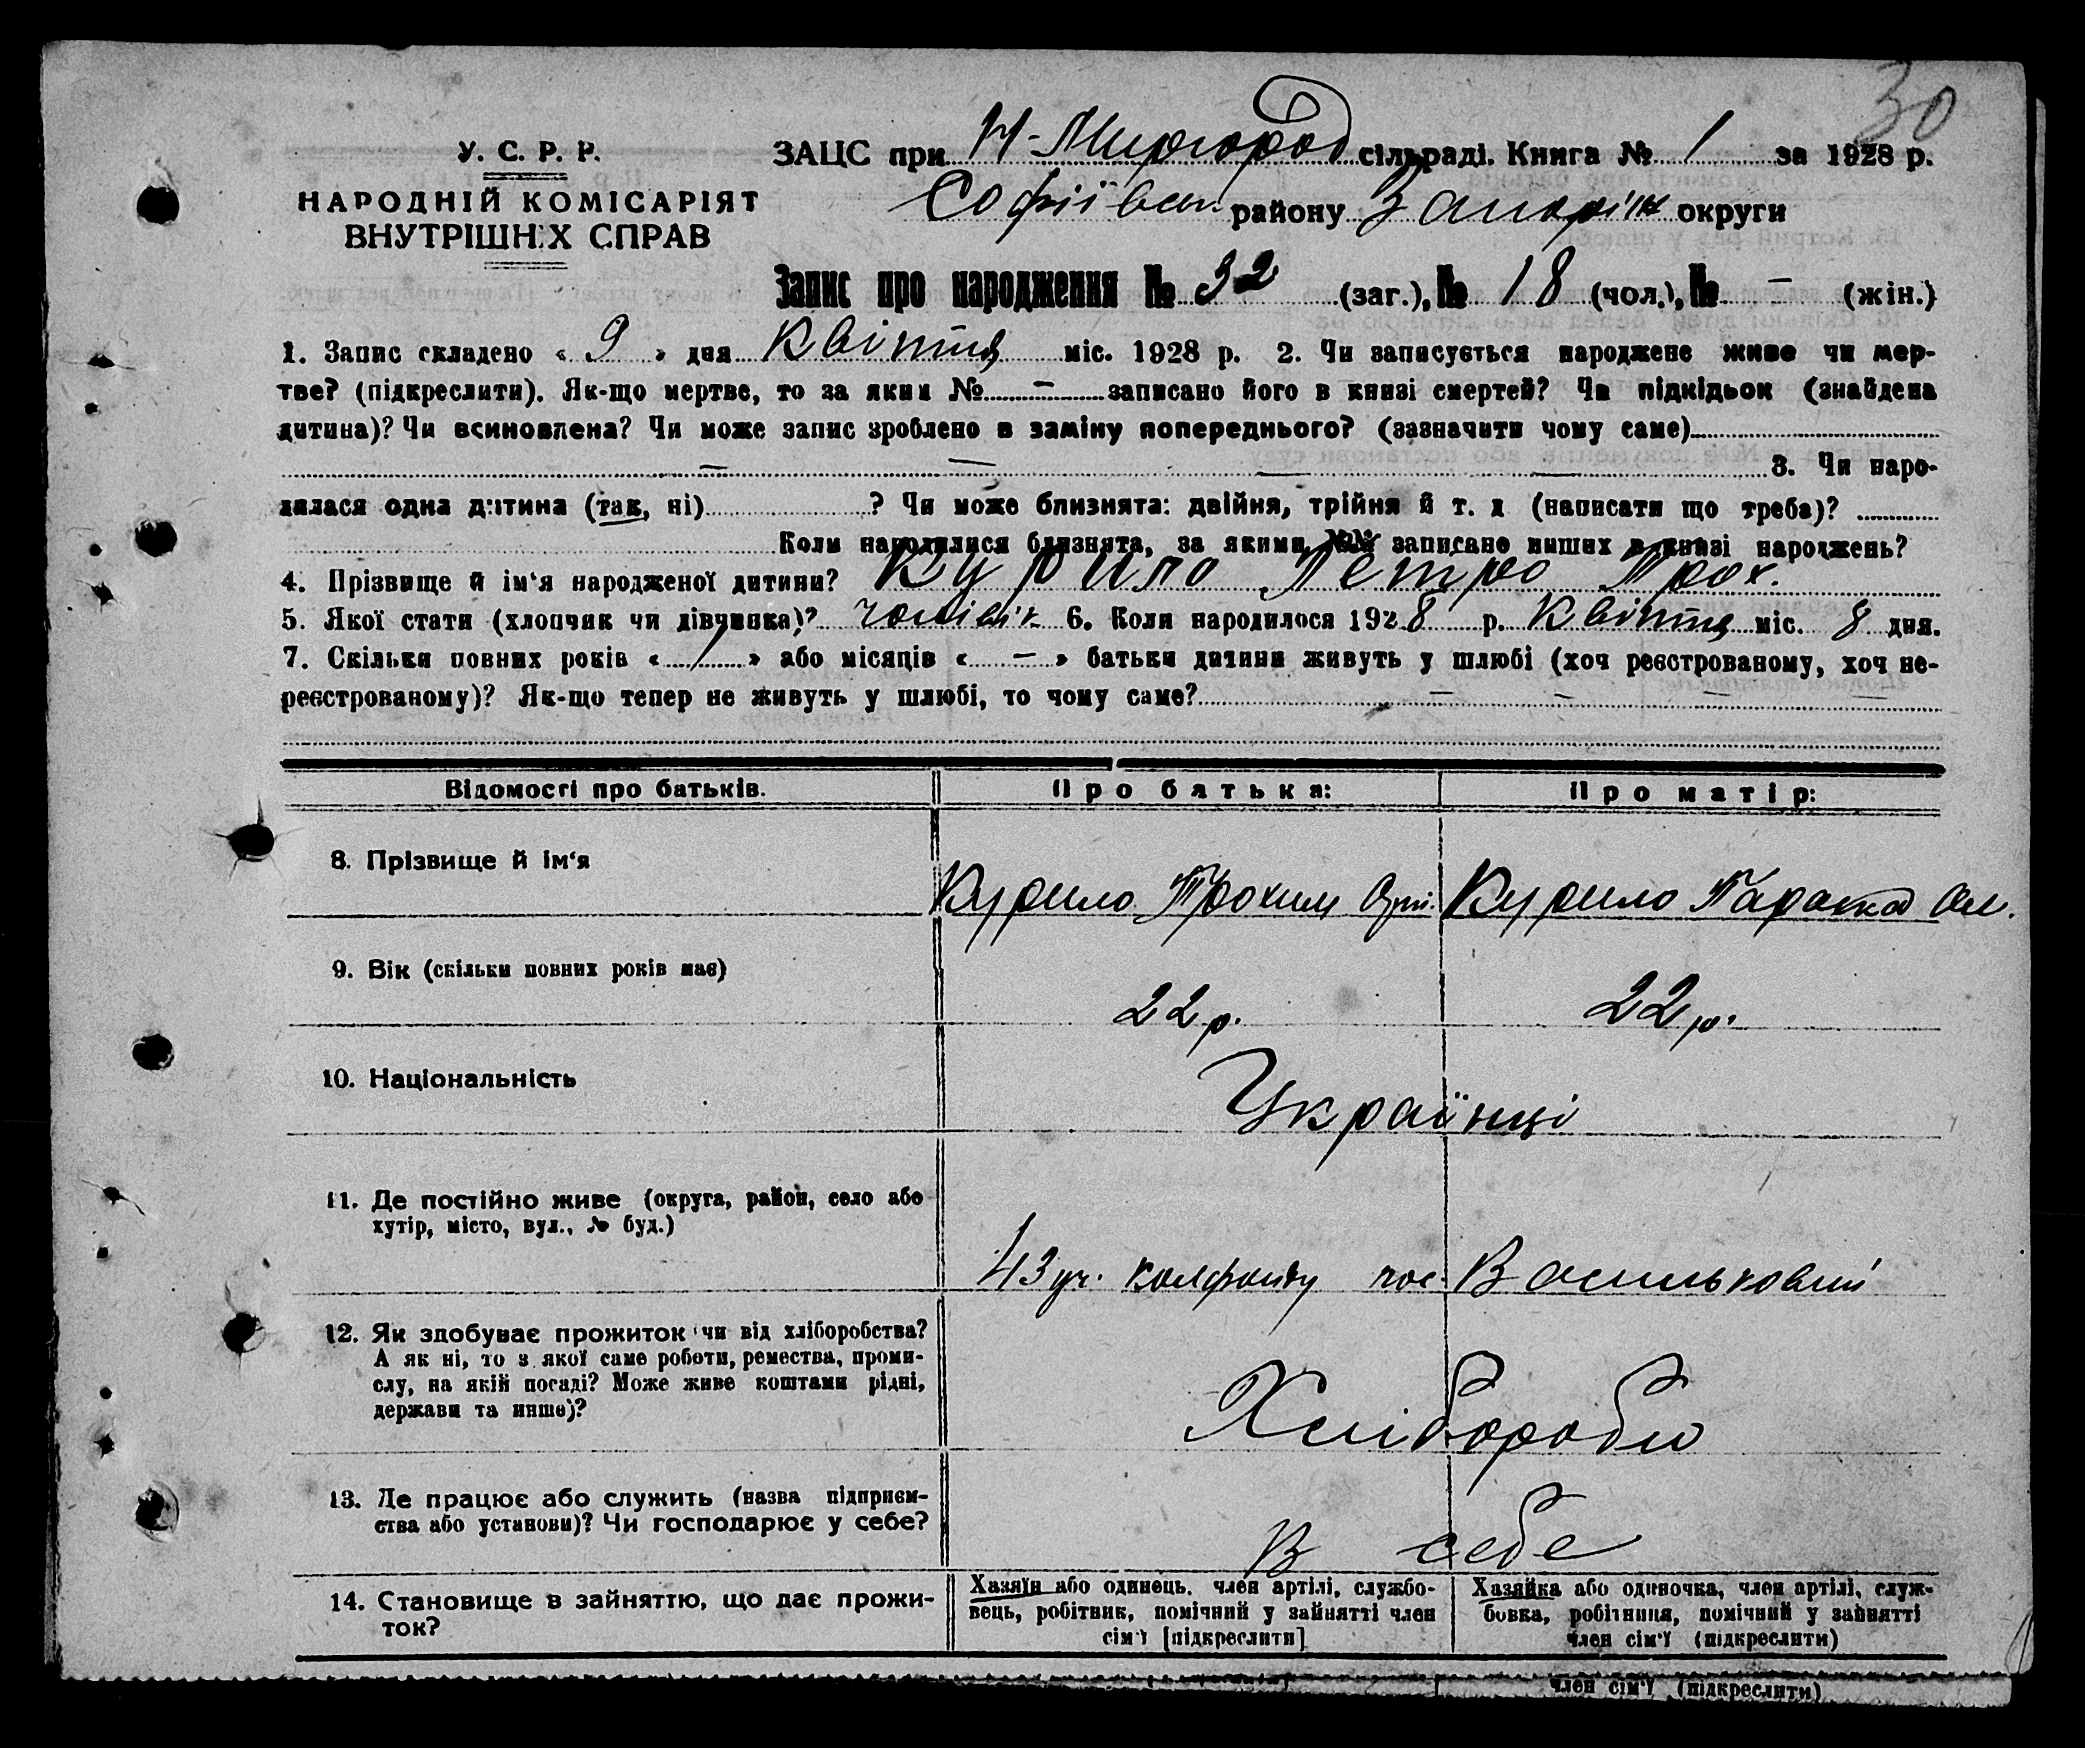 30
У. С. Р. Р.
НАРОДНІЙ КОМІСАРІЯТ
ВНУТРІШНІХ СПРАВ
ЗАЦС при Н-Миргород сільраді. Книга № 1 за 1928 р.
Софіївск. району Запоріж округи
Запис про народження № 32 (заг.), № 18 (чол.), № - (жін.)
1. Запис складено « 9 » дня Квітня міс. 1928 р. 2. Чи записується народжене живе чи мер-
тве? (підкреслити). Як-що мертве, то за яким № - записано його в книзі смертей? Чи підкідьок (знайдена
дитина)? Чи всиновлена? Чи може запис зроблено в заміну попереднього? (зазначити чому саме)
— — — — 3. Чи наро-
дилася одна дитина (так, ні) ? Чи може близнята: двійня, трійня й т. д (написати що треба)?
Коли народилися близнята, за якими №№ записано инших в книзі народжень?
4. Прізвище й ім'я народженої дитини? Курило Петро Трох.
5. Якої стати (хлопчик чи дівчинка)? чоловік 6. Коли народилося 1928 р. Квітня міс. 8 дня.
7. Скільки повних років « 1 » або місяців « - » батьки дитини живуть у шлюбі (хоч реєстрованому, хоч не-
реєстрованому)? Як-що тепер не живуть у шлюбі, то чому саме? — — — —
Відомості про батьків. Про батька: Про матір:
8. Прізвище й ім'я Курило Трохим Курило Параска Ол.
9. Вік (скільки повних років має) 22 р. 22 р.
10. Національність Українці
11. Де постійно живе (округа, район, село або
хутір, місто, вул., № буд.)
43 уч. колфонду пос. Васильковий
12. Як здобуває прожиток чи від хліборобства?
А як ні, то з якої саме роботи, ремества, проми-
слу, на якій посаді? Може живе коштами рідні,
держави та инше)?
Хлібороби
13. Де працює або служить (назва підприєм-
ства або установи)? Чи господарює у себе?
В себе
14. Становище в зайняттю, що дає прожи-
ток?
Хазяїн або одинець, член артілі, службо-
вець, робітник, помічний у зайнятті член
сім'ї [підкреслити]
Хазяйка або одиночка, член артілі, служ-
бовка, робітниця, помічний у зайнятті
член сім'ї (підкреслити)
член сім'ї (підкреслити)